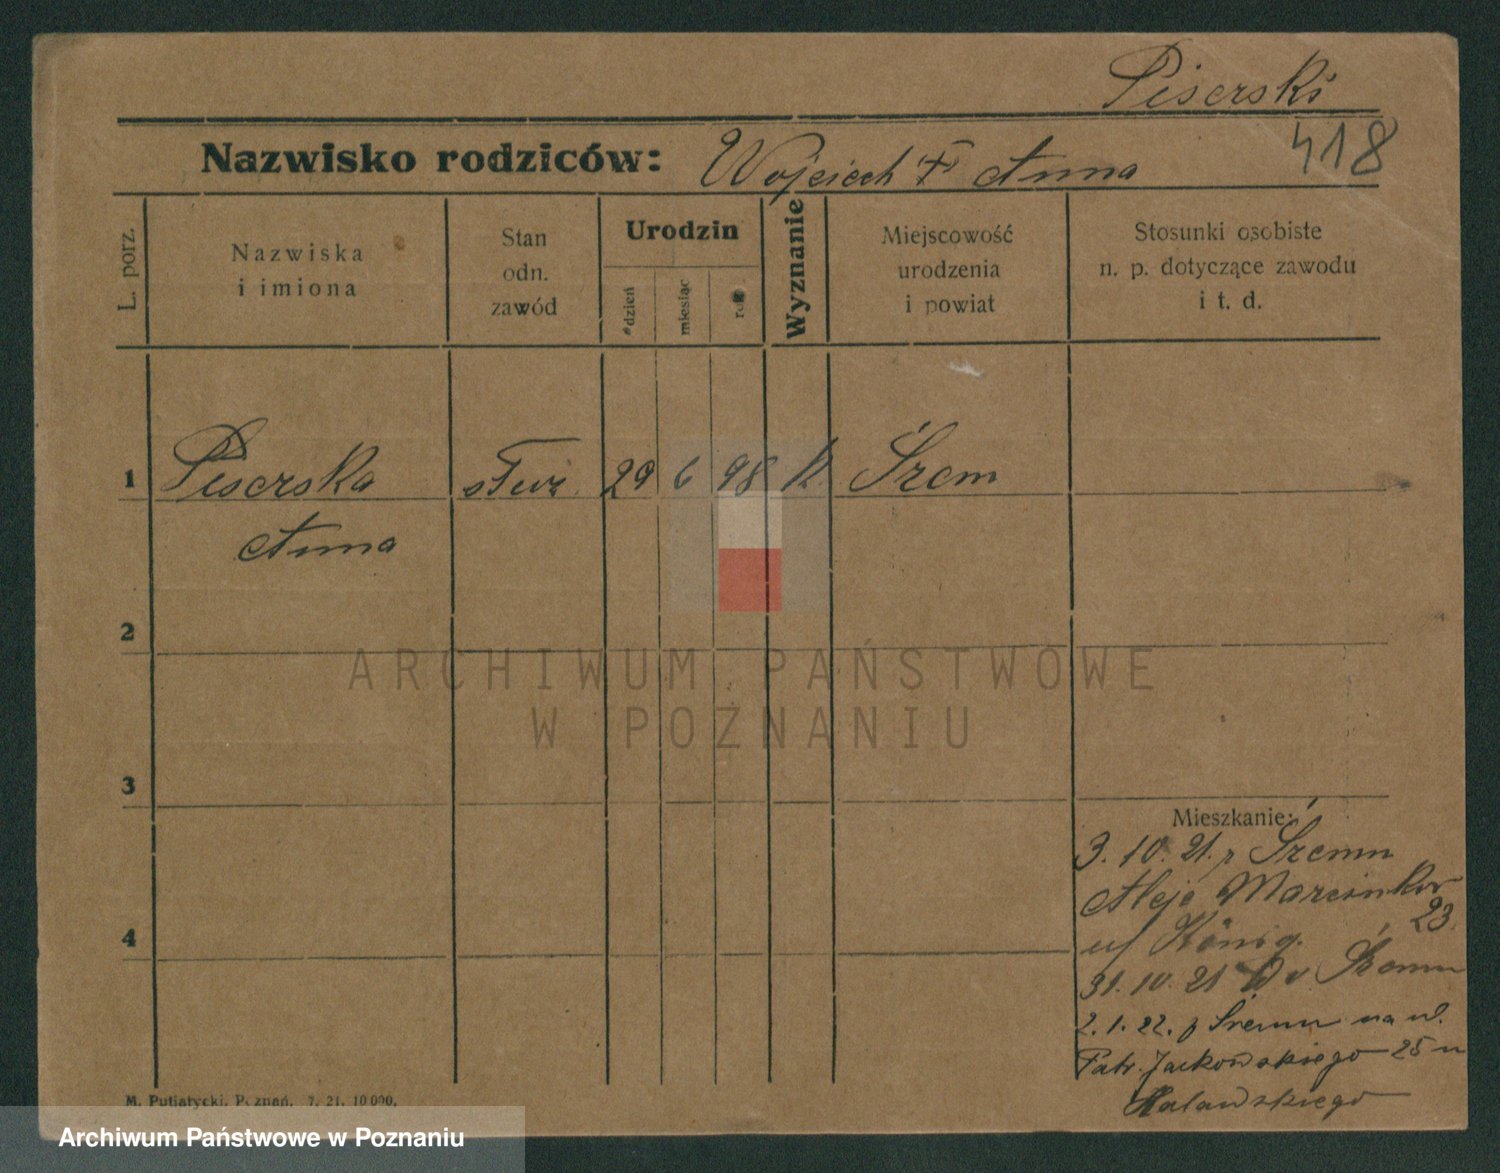 Piserski
418
Nazwisko rodziców: Wojciech i Anna
L. porz.
Nazwiska
i imiona
Stan
odn.
zawód
Urodzin
dzień
miesiąc
rok
Wyznanie
Miejscowość
urodzenia
i powiat
Stosunki osobiste
n. p. dotyczące zawodu
i t. d.
1 Piserska służ. 29 6 98 k Śrem
Anna
2
ARCHIWUM PAŃSTWOWE
W POZNANIU
3
4
Mieszkanie:
3. 10. 21. z Śremu
Aleje Marcinkow
23
u/ König.
31. 10. 21
2. 1. 22. z Śremu na ul.
Patr. Jackowskiego 25 u
M. Putiatycki, Poznań, 7. 21. 10 000.
Archiwum Państwowe w Poznaniu